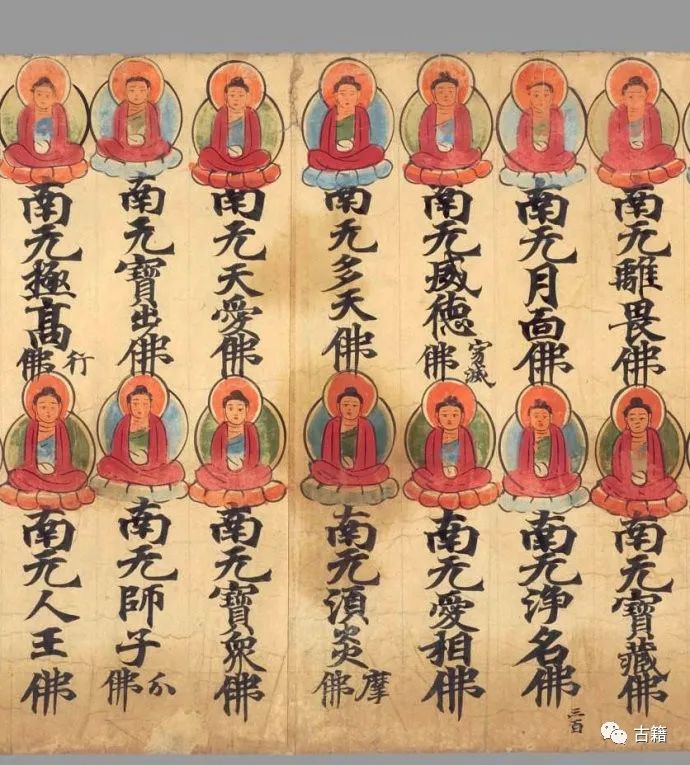 南无離畏佛
南无寶藏佛
南无月面佛
南无浄名佛
三百
南无威德寂滅佛
南无愛相佛
南无多天佛
南无湏炎摩佛
南无天愛佛
南无寶衆佛
南无寶步佛
南无師子分佛
南无極髙行佛
南无人王佛
古籍